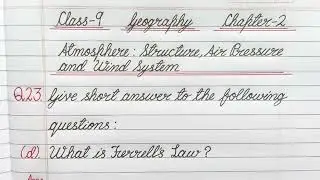 Class-9 Geography Chapter-2
Atmosphere: Structure, Air Pressure
and Wind System
Q.23. Give short answer to the following
questions:
(d) What is Ferrell's Law?
Ans.